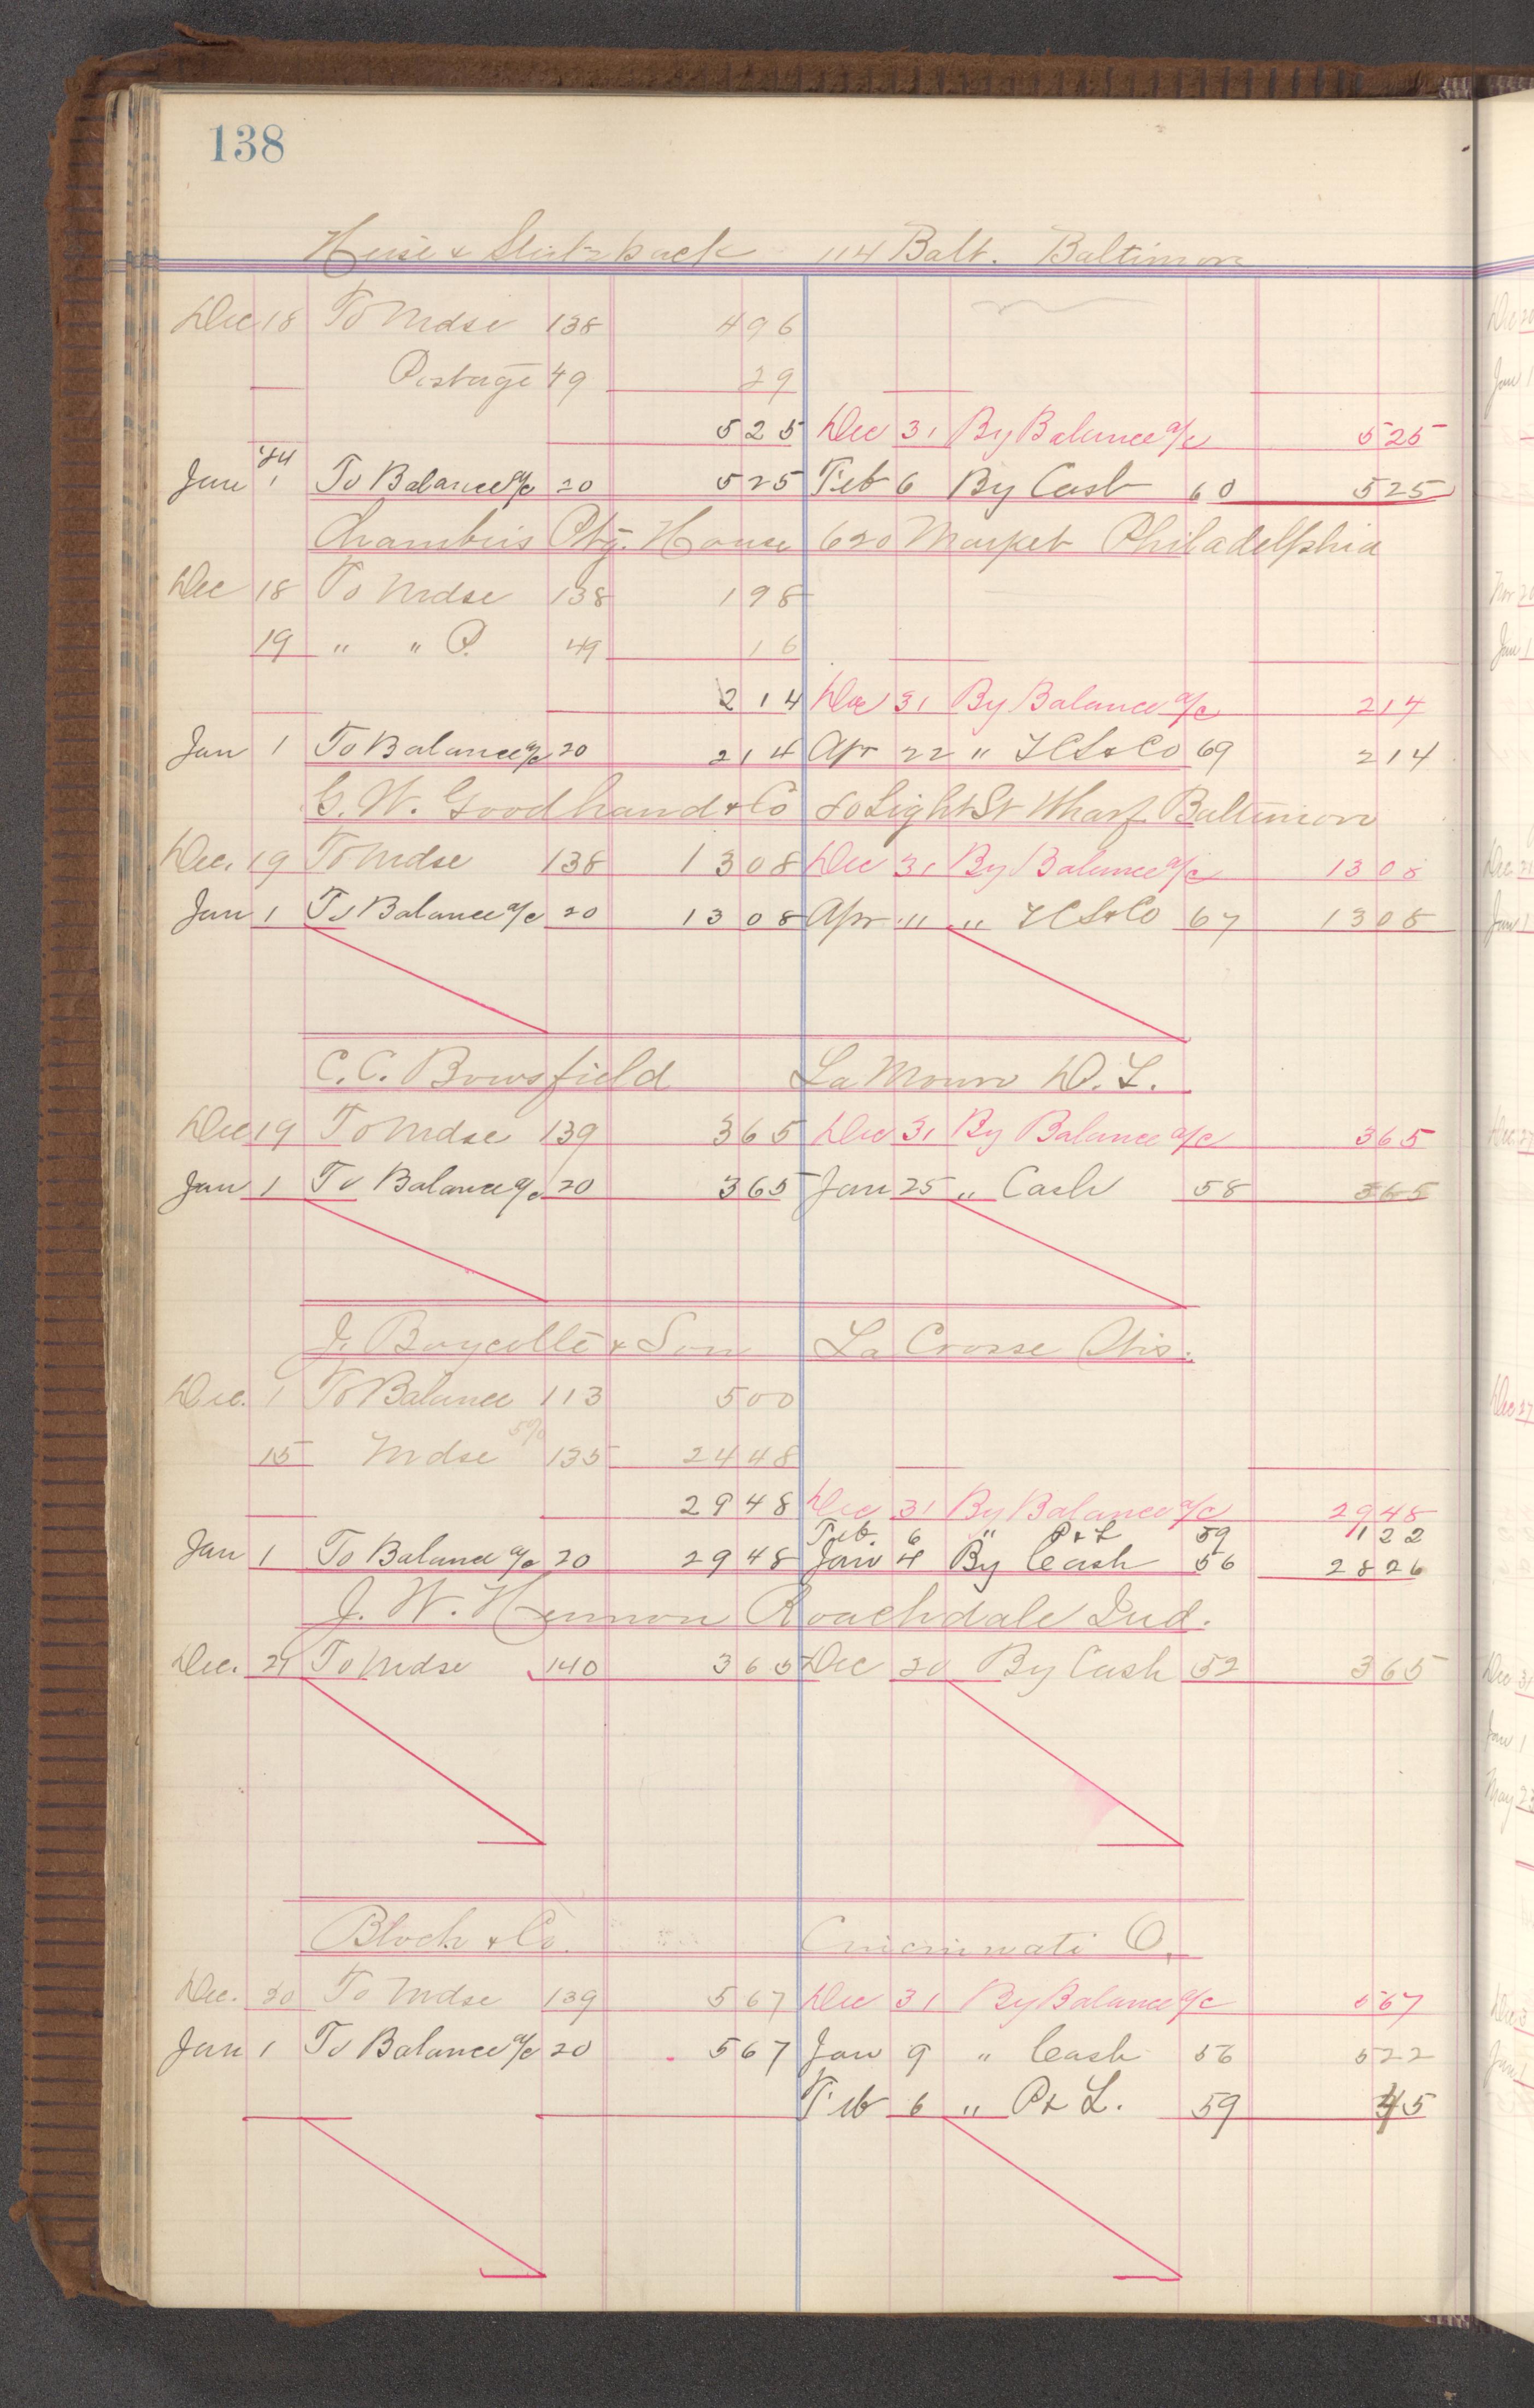 138
Heise & Stutzback 114 Balt. Baltimore
Dec 18 To Mdse 138 496
Postage 49 29
525 Dec 31 By Balance a/c 525
'84
Jan 1 To Balance a/c 20 525 Feb 6 By Cash 60 525
Chambers Ptg. House 620 Market Philadelphia
Dec 18 To Mdse 138 198
19 " " P. 49 16
214 Dec 31 By Balance a/c 214
Jan 1 To Balance a/c 20 214 Apr 22 " & Co 69 214
G. W. Goodhand & Co 80 Light St Wharf Baltimore
Dec. 19 To Mdse 138 1308 Dec 31 By Balance a/c 1308
Jan 1 To Balance a/c 20 1308 Apr 11 " & Co 67 1308
C. C. Bowsfield La Moure D. T.
Dec 19 To Mdse 139 365 Dec 31 By Balance a/c 365
Jan 1 To Balance a/c 20 365 Jan 25 " Cash 58 365
J. & Son La Crosse Wis.
Dec. 1 To Balance 113 500
15 Mdse 5% 135 2448
2948 Dec 31 By Balance a/c 2948
Feb. 6 " P & L 59 122
Jan 1 To Balance a/c 20 2948 Jan 4 By Cash 56 2826
J. W. Hennon Roachdale Ind.
Dec. 21 To Mdse 140 365 Dec 20 By Cash 52 365
Bloch & Co. Cincinnati O.
Dec. 20 To Mdse 139 567 Dec 31 By Balance a/c 567
Jan 1 To Balance a/c 20 567 Jan 9 " Cash 56 522
Feb 6 " P & L. 59 45